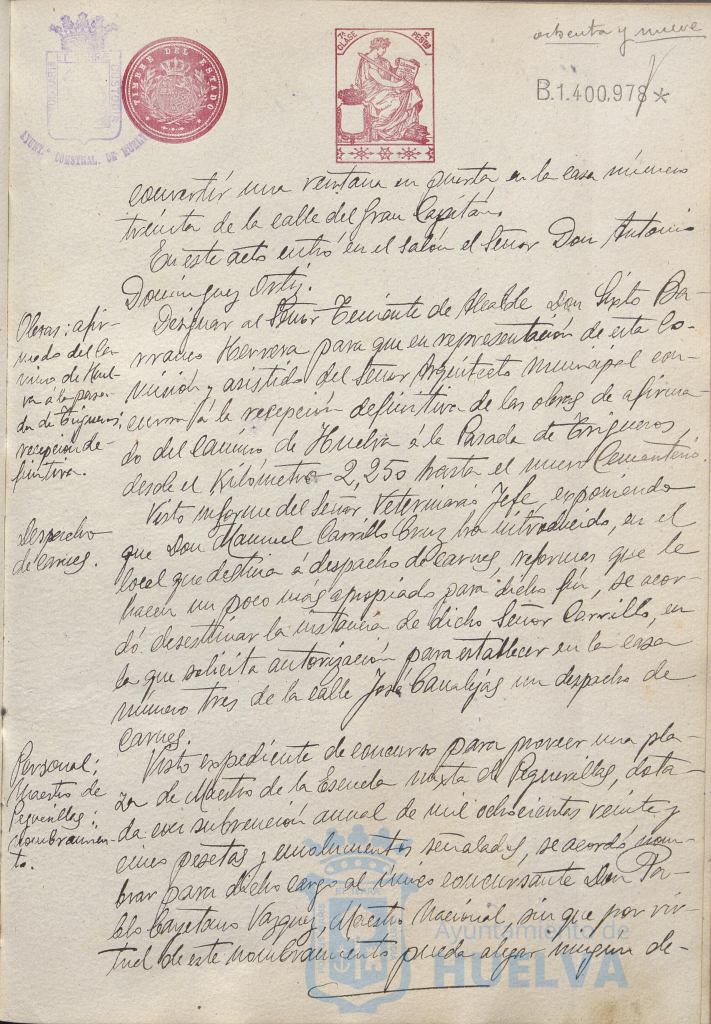 ochenta y nueve
TIMBRE DEL ESTADO
7ª CLASE
2 PESETAS
B.1.400.978 *
AYUNT.º CONSTNAL. DE HUELVA
convertir una ventana en puerta en la casa número
treinta de la calle del Gran Capitán.
En este acto entró en el salón el Señor Don Antonio
Domínguez Ortiz.
Obras: afir-
mado del Ca-
mino de Huel-
va a la pasa-
da de Trigueros;
recepción de-
finitiva.
Designar al Señor Teniente de Alcalde Don Sixto Ba-
rranco Herrera para que en representación de esta Co-
misión y asistido del Señor Arquitecto Municipal con-
curra á la recepción definitiva de las obras de afirma-
do del Camino de Huelva á la Pasada de Trigueros,
desde el Kilómetro 2,250 hasta el nuevo Cementerio.
Despacho
de carnes.
Visto informe del Señor Veterinario Jefe, exponiendo
que Don Manuel Carrillo Cruz ha introducido, en el
local que destina á despacho de carnes, reformas que le
hacen un poco más apropiado para dicho fin, se acor-
dó desestimar la instancia de dicho Señor Carrillo, en
la que solicita autorización para establecer en la casa
número tres de la calle José Canalejas un despacho de
carnes.
Personal;
Maestro de
Peguerillas:
nombramien-
to.
Visto expediente de concurso para proveer una pla-
za de Maestro de la Escuela mixta de Peguerillas, dota-
da con subvención anual de mil ochocientas veinte y
cinco pesetas y emolumentos señalados, se acordó nom-
brar para dicho cargo al único concursante Don Pa-
blo Cayetano Vazquez, Maestro Nacional, sin que por vir-
tud de este nombramiento pueda alegar ningun de-
Ayuntamiento de
HUELVA